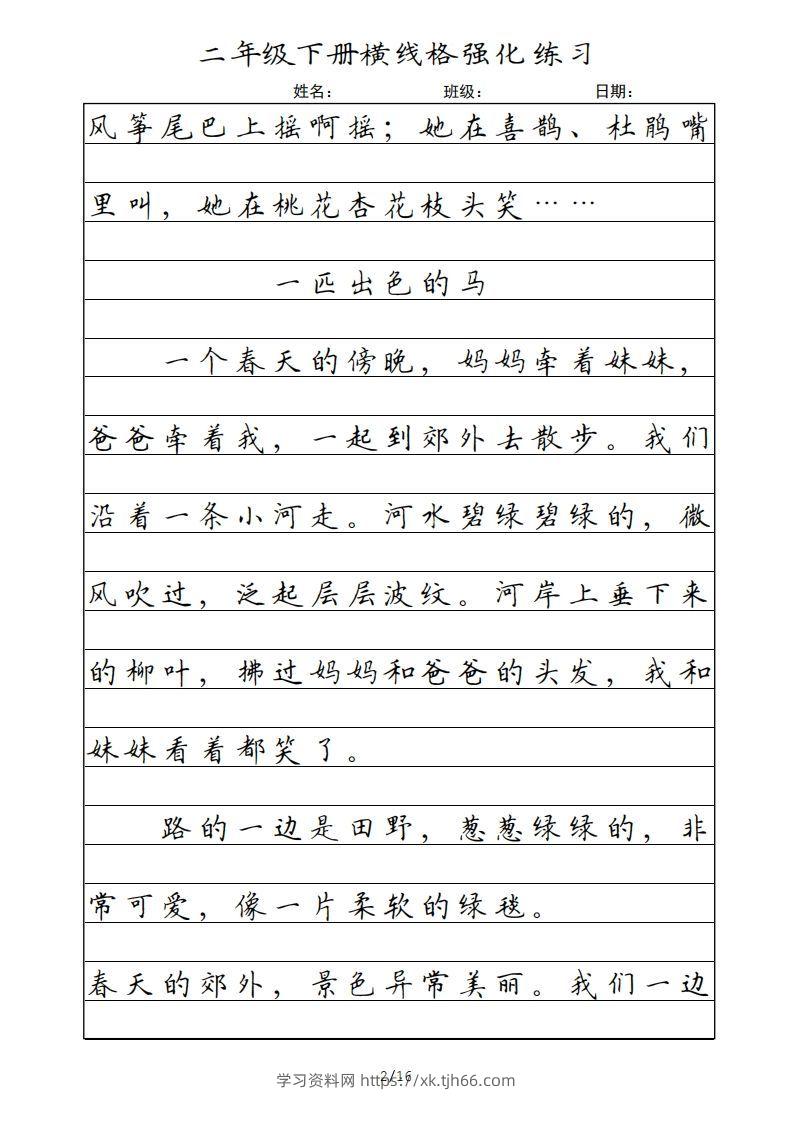 二年级下册横线格强化练习
姓名： 班级： 日期：
风筝尾巴上摇啊摇；她在喜鹊、杜鹃嘴
里叫，她在桃花杏花枝头笑……
一匹出色的马
一个春天的傍晚，妈妈牵着妹妹，
爸爸牵着我，一起到郊外去散步。我们
沿着一条小河走。河水碧绿碧绿的，微
风吹过，泛起层层波纹。河岸上垂下来
的柳叶，拂过妈妈和爸爸的头发，我和
妹妹看着都笑了。
路的一边是田野，葱葱绿绿的，非
常可爱，像一片柔软的绿毯。
春天的郊外，景色异常美丽。我们一边
2/16
学习资料网 https://xk.tjh66.com